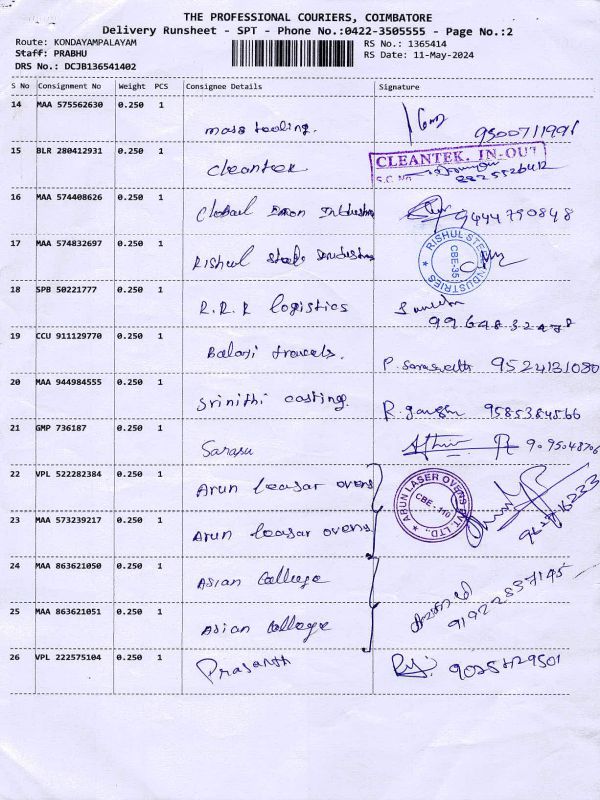 THE PROFESSIONAL COURIERS, COIMBATORE
Delivery Runsheet - SPT - Phone No.:0422-3505555 - Page No.:2
Route: KONDAYAMPALAYAM
Staff: PRABHU
DRS No.: DCJB136541402
RS No.: 1365414
RS Date: 11-May-2024
S No Consignment No Weight PCS Consignee Details Signature
14 MAA 575562630 0.250 1
mass tooling.
15 BLR 280412931 0.250 1
Cleantek
CLEANTEK. IN-OUT
S.C. No
16 MAA 574408626 0.250 1
9444790848
17 MAA 574832697 0.250 1
Rishul steel industries
RISHUL STEEL INDUSTRIES
CBE-35
18 SPB 50221777 0.250 1
R.R.R logistics
19 CCU 911129770 0.250 1
Balaji travels.
P. Saraswathi 9524131080
20 MAA 944984555 0.250 1
Srinithi casting.
R. 9585384566
21 GMP 736187 0.250 1
Sarasu
22 VPL 522282384 0.250 1
Arun leasar ovens
ARUN LASER OVENS PVT. LTD.,
CBE-110
23 MAA 573239217 0.250 1
Arun leasar ovens
24 MAA 863621050 0.250 1
Asian College
25 MAA 863621051 0.250 1
Asian College
26 VPL 222575104 0.250 1
Prasanth